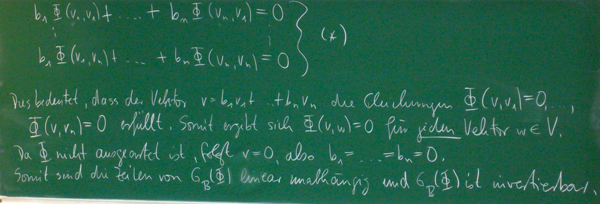 b₁Φ(v₁,v₁)+ .... + bₙΦ(vₙ,v₁)=0
⋮ ⋮ (*)
b₁Φ(v₁,vₙ)+ .... + bₙΦ(vₙ,vₙ)=0
Dies bedeutet, dass der Vektor v=b₁v₁+...+bₙvₙ die Gleichungen Φ(v,v₁)=0,...,
Φ(v,vₙ)=0 erfüllt. Somit ergibt sich Φ(v,w)=0 für jeden Vektor w∈V.
Da Φ nicht ausgeartet ist, folgt v=0, also b₁=....=bₙ=0.
Somit sind die Zeilen von G_B(Φ) linear unabhängig und G_B(Φ) ist invertierbar.